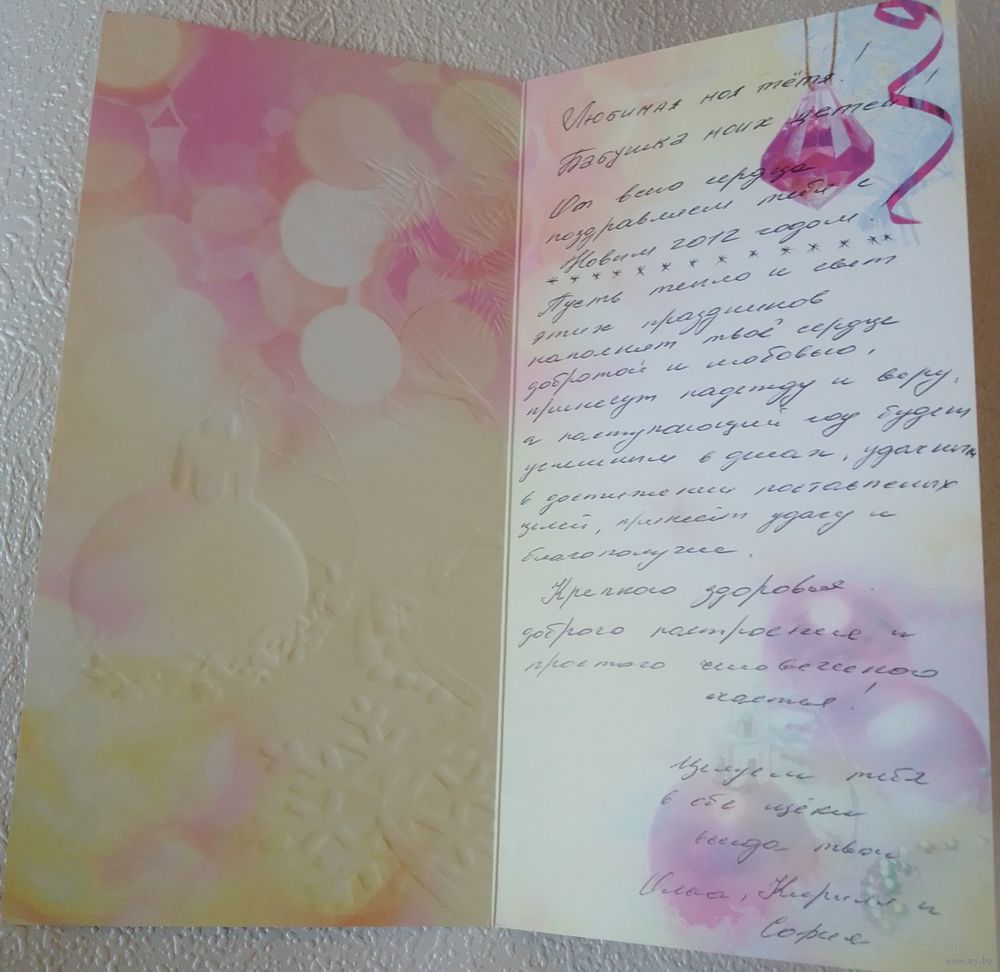 Любимая моя тётя!
Бабушка моих детей!
От всего сердца
поздравляем тебя с
Новым 2012 годом.
* * * * * * * * * * * * *
Пусть тепло и свет
этих праздников
наполнят твоё сердце
добротой и любовью,
принесут надежду и веру,
а наступающий год будет
успешным в делах, удачным
в достижении поставленых
целей, принесёт удачу и
благополучие.
Крепкого здоровья.
доброго настроения и
простого человеческого
счастья!
Целуем тебя
в обе щёки
всегда твои
Ольга, Кирилл и
София
www.ay.by